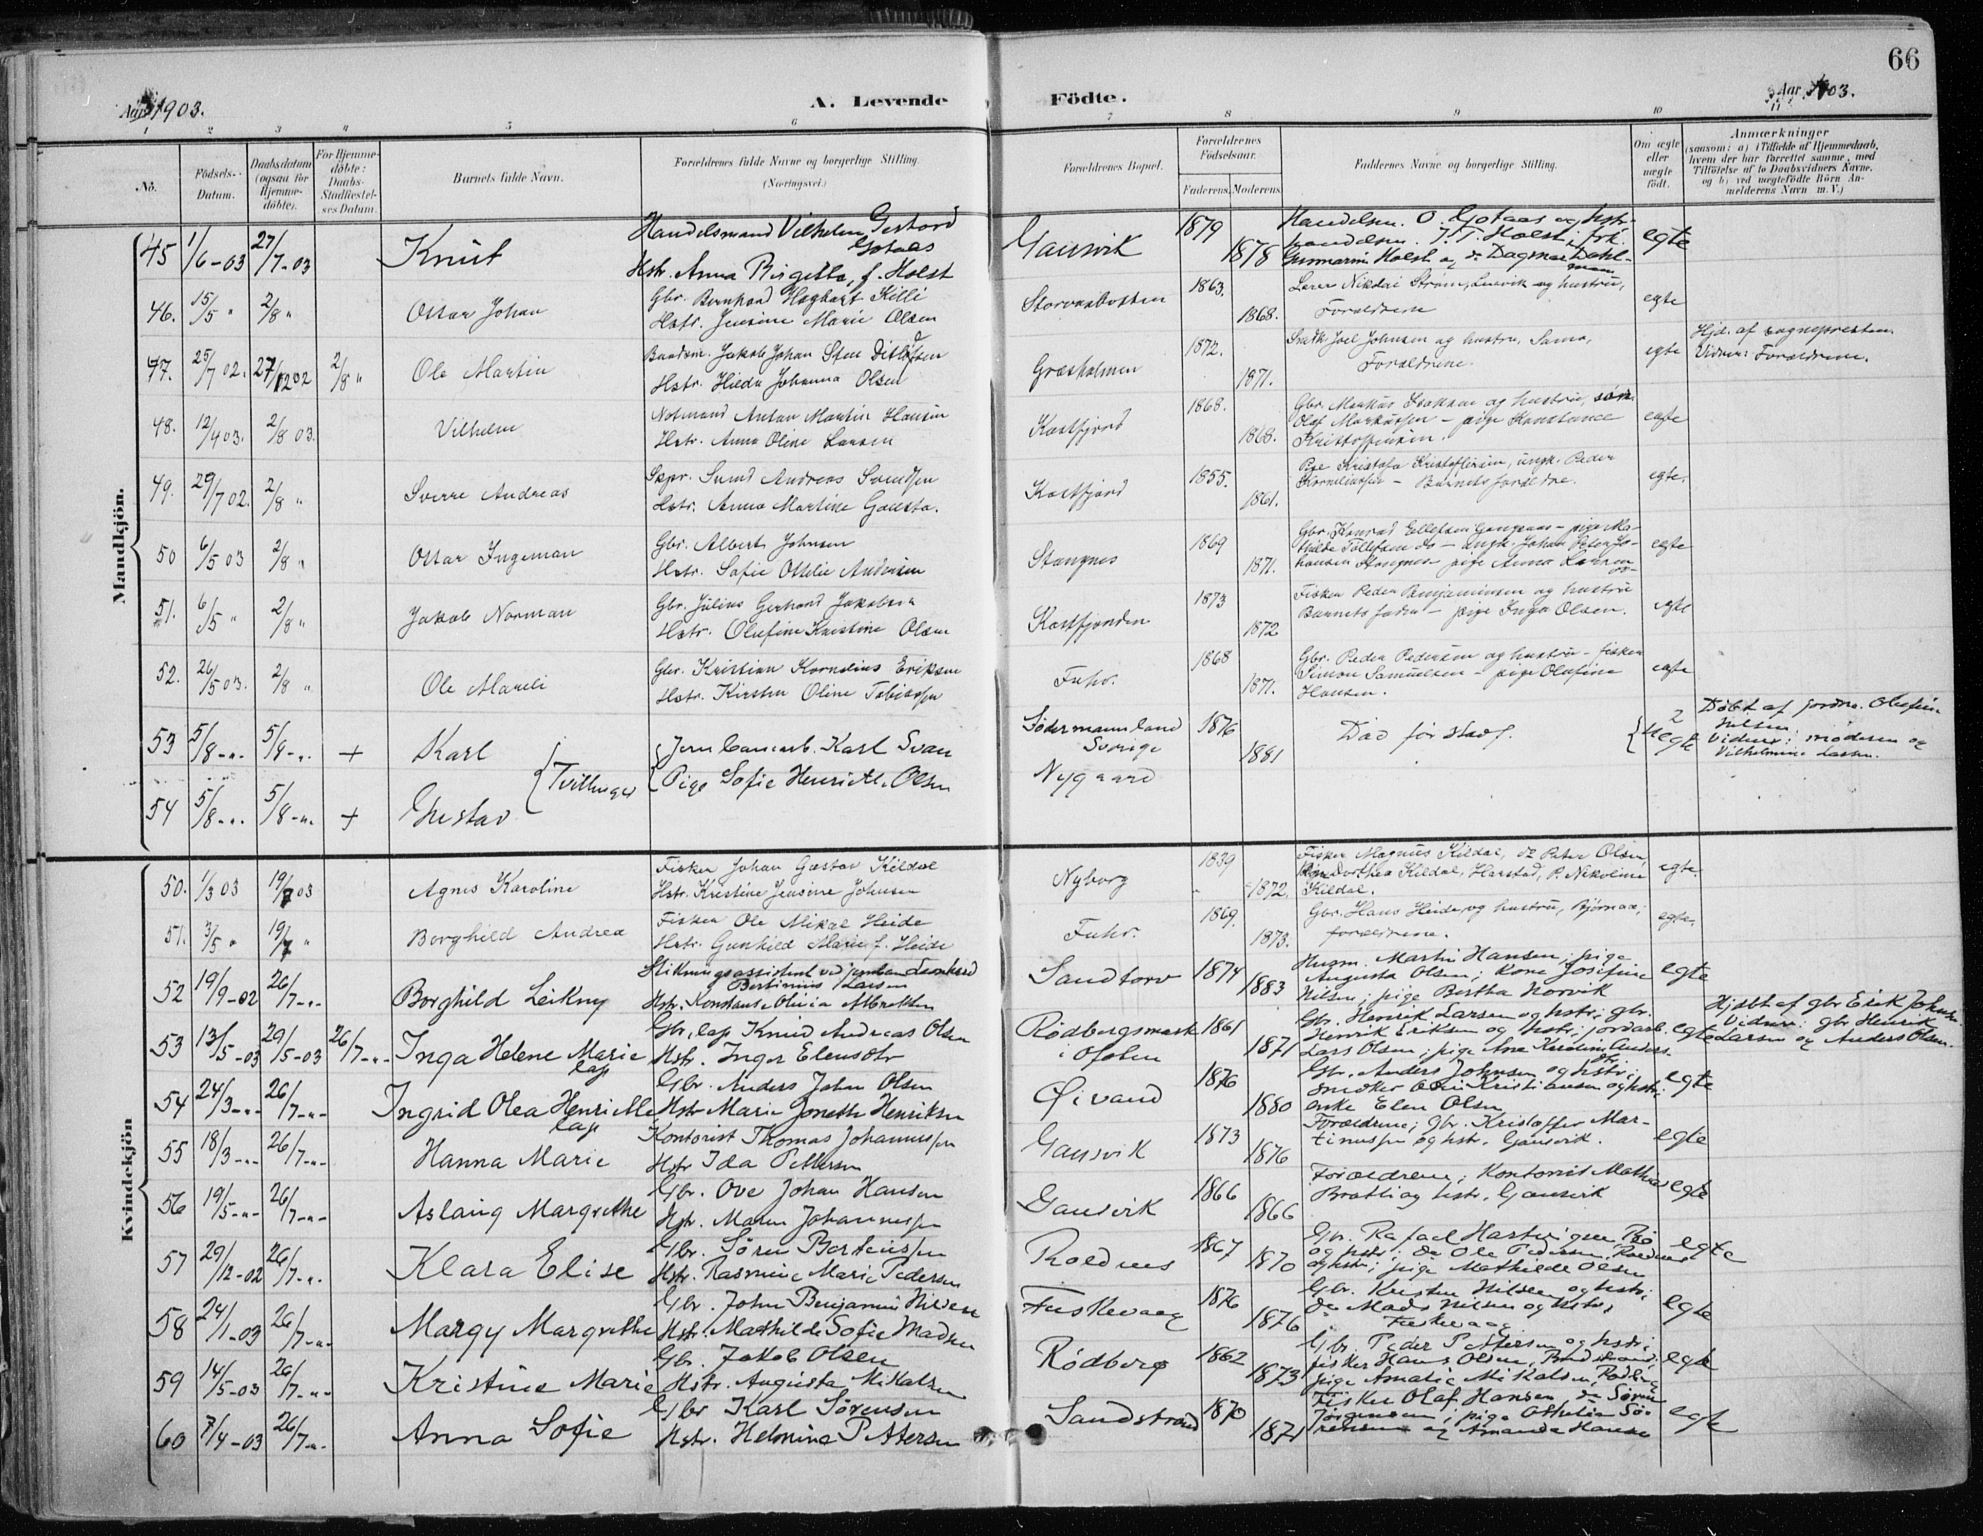 66
Aar 1903.
A. Levende Födte.
Aar 1903.
1 2 3 4 5 6 7 8 9 10 11
No.
Födsels-Datum.
Daabsdatum (ogsaa for Hjemme-döbte).
For Hjemme-döbte: Daabs-Stadfæstel-ses Datum.
Barnets fulde Navn.
Forældrenes fulde Navne og borgerlige Stilling. (Næringsvei.)
Forældrenes Bopæl.
Forældrenes Födselsaar.
Faderens. Moderens.
Faddernes Navne og borgerlige Stilling.
Om ægte eller uægte födt.
Anmærkninger
(saasom: a) i Tilfælde af Hjemmedaab, hvem der har forrettet samme, med Tilföielse af to Daabsvidners Navne, og b) ved uægtefödte Börn An-melderens Navn m. V.)
Mandkjön.
45 1/6-03 27/7-03 Knut
Handelsmand Vilhelm Gotaas
Hstr. Anna Birgitta, f. Holst
Gausvik 1879 1878
Handelsm. O. Gotaas og hstr.
handelsm. J. T. Holst, frk.
Holst og Do Dagmar Dahl-
egte
46. 15/5 " 2/8 " Ottar Johan
Gbr. Bernhard Hagbart Killi
Hstr. Jensine Marie Olsen
1863. 1868.
Lærer Nikolai Strøm, og hustru,
Forældrene
egte
47. 25/7 02. 27/12 02 2/8 " Ole Martin
Jakob Johan Sten Ditlefsen
Hstr. Hilda Johanna Olsen
Græsholmen 1872. 1871.
Smed Joel Johnsen og hustru, Sama,
Forældrene.
egte
Hjd. af sognepresten.
Vidner: Forældrene.
48. 12/4 03. 2/8 03. Vilhelm
Notmand Anton Martin Hansen
Hstr. Anna Oline Larsen
Kastfjord 1868. 1868.
Gbr. Markus Isaksen og hustru, søn
Olaf Markussen - pige Konstance
Kristoffersen.
egte
49. 29/7 02. 2/8 " Sverre Andreas
Skpr. Svend Andreas Svendsen
Hstr. Anna Martine
Kastfjord 1855. 1861.
Pige Kristofa Kristoffersen, ungk. Peder
Korneliussen - Barnets forældre.
egte.
50 6/5 03 2/8 " Ottar Ingeman
Gbr. Albert Johnsen
Hstr. Sofie Ottilie Andersen
Stangnes 1869 1871.
Gbr. Konrad Ellefsen Gangsaas - pige Ma-
thilde Tollefsen do - ungk. Johan Peter Jo-
hansen Stangnes - pige Anna Larsen
egte
51. 6/5 " 2/8 " Jakob Norman
Gbr. Julius Gerhard Jakobsen
Hstr. Olufine Kristine Olsen
Kastfjorden 1873 1872
Fisker Peder Benjaminsen og hustru
Barnets fader - pige Inga Olsen.
egte
52. 26/5 03. 2/8 " Ole Mareli
Gbr. Kristian Kornelius Eriksen
Hstr. Kirsten Oline Tobiassen
1868 1871.
Gbr. Peder Pedersen og hustru - fisker
Simon Samuelsen - pige Olufine
Hansen.
egte
53 5/8-". 5/8-". + Karl
54 5/8-". 5/8-". + Gustav
Tvillinger
Karl Svan
Pige Sofie Henriette Olsen
Södermannland
Sverige
Nygaard
1876 1881
Død før stadf.
2 uegte
Døbt af jordm. Olufine
Nilsen
Vidner: Moderen og
Vilhelmine Larsen.
Kvindekjön
50. 1/3 03 19/7 03 Agnes Karoline
Fisker Johan Gustav Kildal
Hstr. Kristine Jensine Johnsen
Nyborg 1839 1872.
Fisker Magnus Kildal, Do Peter Olsen,
Dorthea Kildal, Harstad, P. Nikoline
Kildal.
egte.
51. 3/5 " 19/7 " Borghild Andrea
Fisker Ole Mikal Heide
Hstr. Gunhild Marie f. Heide
1869. 1873.
Gbr. Hans Heide og hustru, Bjørnaa,
forældrene.
egte.
52 19/9-02 26/7-". Borghild Leikny
Stikningsassistent ved jernban Leonhard
Bertinius Larsen
Hstr. Konstanse Olivia Albrektsen
Sandtorv 1874 1883
Husm. Martin Hansen, pige
Augusta Olsen; kone Josefine
Nilsen; pige Bertha Norvik
egte
53 13/5-03 29/5-03 26/7-". Inga Helene Marie
lap
Gbr, lap Knud Andreas Olsen
Hstr. Inger Elensdtr
Rødbergsmark
i Ofoten
1861 1871
Gbr. Henrik Larsen og hstr; gbr.
Henrik Eriksen og hstr; jordarb.
Lars Olsen; pige Ane Kirstine Anders
dtr
egte
Hjdbt af gbr Erik Johnsen
Vidner: gbr Henrik
Larsen og Anders Olsen.
54 24/3-". 26/7-". Ingrid Olea Henriette
lap
Gbr. Anders John Olsen
Hstr Marie Jonette Henriksen
Øivand 1876 1880
Gbr. Anders Johnsen og hstr;
snedker Kristiansen og hstr;
enke Elen Olsen
egte
55 18/3-". 26/7-". Hanna Marie
Kontorist Thomas Johannessen
Hstr Ida Pettersen
Gausvik 1873 1876
Forældrene; gbr. Kristoffer Mar-
tinussen og hstr. Gausvik.
egte
56 19/5-". 26/7-". Aslaug Margrethe
Gbr. Ove Johan Hansen
Hstr. Maren Johannessen
Gausvik 1866 1866
Forældrene; Kontorist Mathias
Bratli og hstr, Gausvik
egte
57 29/12-02 26/7-". Klara Elise
Gbr. Søren Berteussen
Hstr. Rasmine Marie Pedersen
Roldnes 1867 1870
Gbr. Rafael Hartvigsen
og hstr; do Ole Pedersen, Roldnes
og hstr; pige Mathilde Olsen
egte
58 24/1-03 26/7-". Margy Margrethe
Gbr. John Benjamin Nilsen
Hstr. Mathilde Sofie Madsen
Fuskevaag 1876 1876
Gbr. Kristen Nilsen og hstr;
do Mads Nilsen og hstr,
Fuskevaag
egte
59 14/5-03 26/7-". Kristine Marie
Gbr. Jakob Olsen
Hstr. Augusta Mikalsen
Rødberg 1862 1873
Gbr. Peder Pettersen og hstr;
fisker Hans Olsen,
pige Amalie Mikalsen, Rødberg
egte
60 7/4-03 26/7-". Anna Sofie
Gbr Karl Sørensen
Hstr. Helmine Pettersen
Sandstrand 1870 1871
Fisker Olaf Hansen, do Søren
Jørgensen; pige Othelia Sø-
rensen og Amanda Hansen
egte